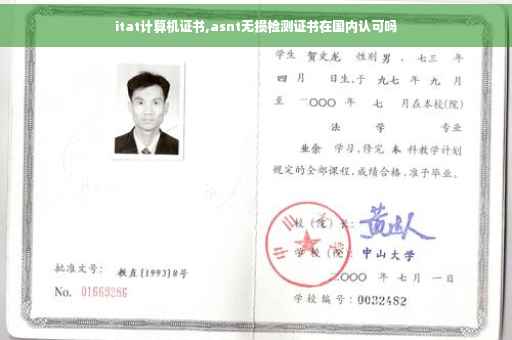 itat计算机证书,asnt无损检测证书在国内认可吗
学生 贺文龙 性别 男，七三 年
四 月 日生，于 九七 年 九 月
至 二〇〇〇 年 七 月在本校(院)
法 学 专业
业余 学习，修完 本 科教学计划
规定的全部课程，成绩合格，准予毕业。
校（院）长：
学校（院）：中山大学
二〇〇〇 年 七 月 一 日
批准文号：教直[1993]8号
No. 01669286
学校编号：0032482